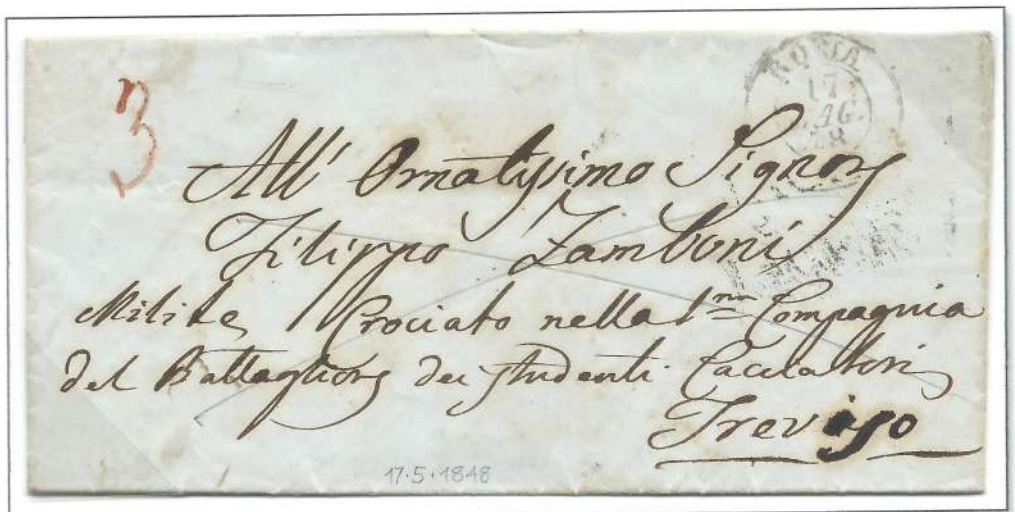 3
ROMA
17
AG
All' Ornatissimo Signore
Filippo Zamboni
Milite Crociato nella 1ma Compagnia
del Battaglione dei studenti Cacciatori
Treviso
17·5·1848